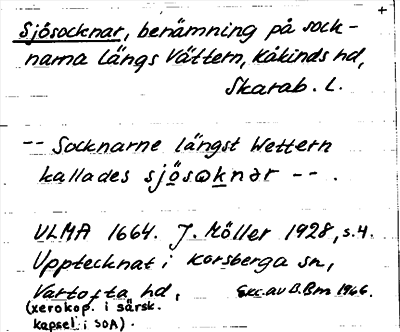 +
Sjösocknar, benämning på sock-
narna längs Vättern, Kåkinds hd,
Skarab. l.
-- Socknarne längst Wettern
kallades sjösωknər -- .
ULMA 1664. J. Möller 1928, s. 4.
Upptecknat i Korsberga sn,
Vartofta hd,
Exc. av B.Bm 1966.
(xerokop. i särsk.
kapsel i SOA).